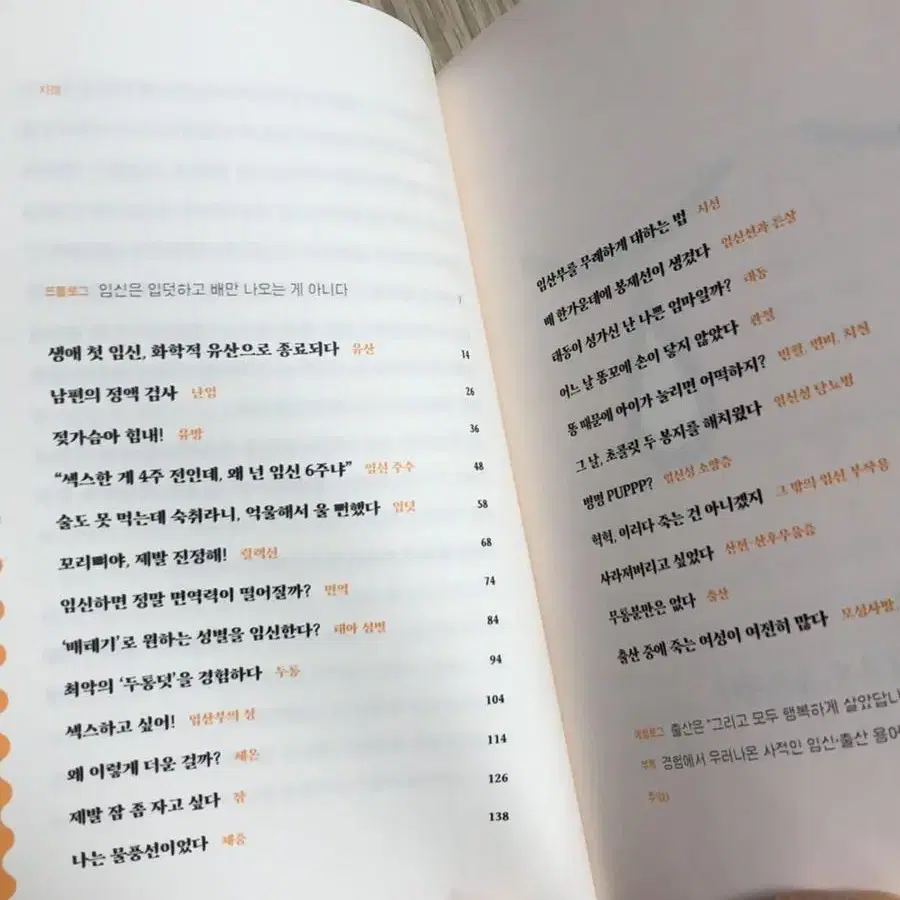 차례
프롤로그 임신은 입덧하고 배만 나오는 게 아니다
생애 첫 임신, 화학적 유산으로 종료되다 유산 14
남편의 정액 검사 난임 26
젖가슴아 힘내! 유방 36
“섹스한 게 4주 전인데, 왜 넌 임신 6주냐” 임신 주수 48
술도 못 먹는데 숙취라니, 억울해서 울 뻔했다 입덧 58
꼬리뼈야, 제발 진정해! 릴랙신 68
임신하면 정말 면역력이 떨어질까? 면역 74
‘배테기’로 원하는 성별을 임신한다? 태아 성별 84
최악의 ‘두통덧’을 경험하다 두통 94
섹스하고 싶어! 임산부의 성 104
왜 이렇게 더운 걸까? 체온 114
제발 잠 좀 자고 싶다 잠 126
나는 물풍선이었다 체중 138
임산부를 무례하게 대하는 법 시선
배 한가운데에 봉제선이 생겼다 임신선과 튼살
태동이 성가신 난 나쁜 엄마일까? 태동
어느 날 똥꼬에 손이 닿지 않았다 관절
똥 때문에 아이가 눌리면 어떡하지? 빈혈, 변비, 치질
그 날, 초콜릿 두 봉지를 해치웠다 임신성 당뇨병
병명 PUPPP? 임신성 소양증
헉헉, 이러다 죽는 건 아니겠지 그 밖의 임신 부작용
사라져버리고 싶었다 산전·산후우울증
무통분만은 없다 출산
출산 중에 죽는 여성이 여전히 많다 모성사망,
에필로그 출산은 “그리고 모두 행복하게 살았답니
부록 경험에서 우러나온 사적인 임신·출산 용어
주(註)